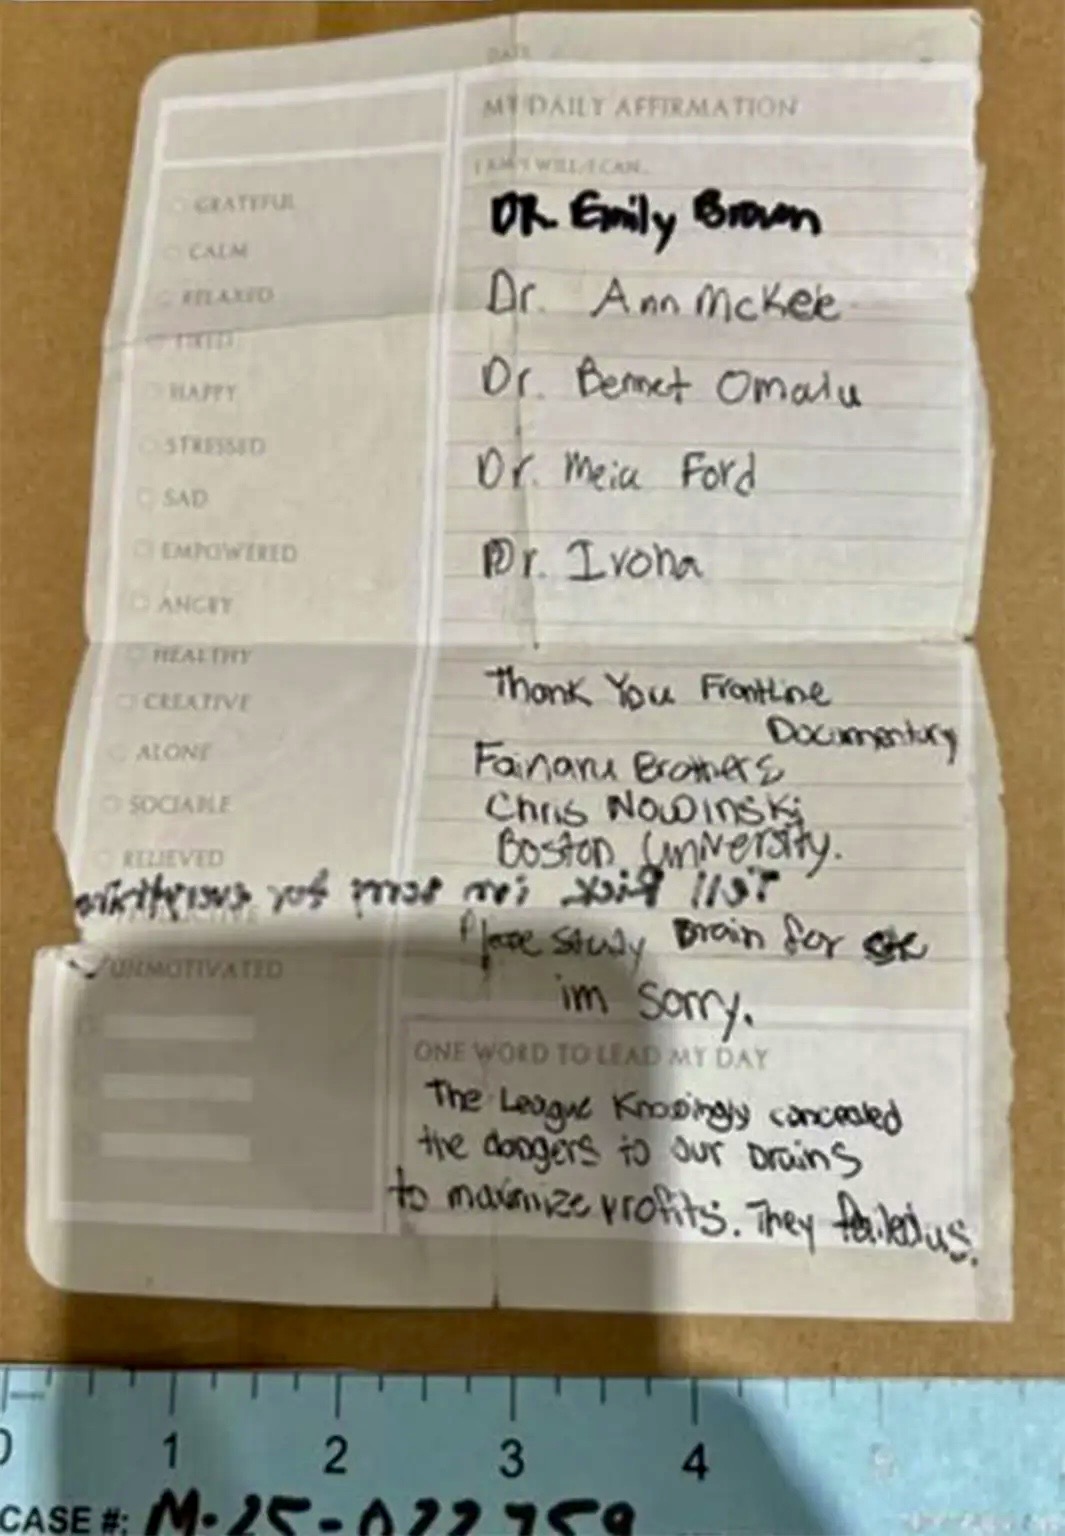 DATE
MY DAILY AFFIRMATION
I AM/I WILL/I CAN...
GRATEFUL
CALM
RELAXED
TIRED
HAPPY
STRESSED
SAD
EMPOWERED
ANGRY
HEALTHY
CREATIVE
ALONE
SOCIABLE
RELIEVED
UNMOTIVATED
DR. Emily Brown
Dr. Ann McKee
Dr. Bennet Omalu
Dr. Meia Ford
Dr. Ivona
Thank You Frontline
Documentary
Fainaru Brothers
Chris Nowinski
Boston University.
Tell Rick im sorry for everything
Please study brain for
im sorry.
ONE WORD TO LEAD MY DAY
The League Knowingly concealed
the dangers to our brains
to maximize profits. They failed us.
0 1 2 3 4
CASE #: M-25-022759